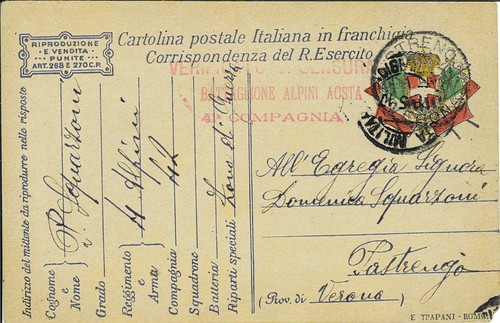 RIPRODUZIONE
E VENDITA
PUNITE
ART. 268 E 270 C.P.
Cartolina postale Italiana in franchigia
Corrispondenza del R. Esercito
BATTAGLIONE ALPINI AOSTA
4ª COMPAGNIA
Indirizzo del mittente da riprodurre nelle risposte
Cognome e Nome Squarzoni
Grado
Reggimento e Arma 4 Alpini
Compagnia 42
Squadrone
Batteria
Riparti speciali Zona di Guerra
All'Egregia Signora
Domenica Squarzoni
Pastrengo
(Prov. di Verona)
E TRAPANI - ROMA